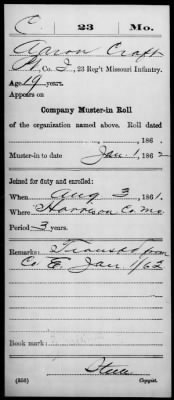 C. 23 Mo.
Aaron Craft
Co. I, 23 Reg't Missouri Infantry.
Age 19 years.
Appears on
Company Muster-in Roll
of the organization named above. Roll dated
, 186 .
Muster-in to date Jan 1, 1862
Joined for duty and enrolled:
When Aug 3, 1861.
Where Harrison Co. Mo
Period 3 years.
Remarks: Transfd from
Co E. Jan 1/62
Book mark:
(356) Copyist.